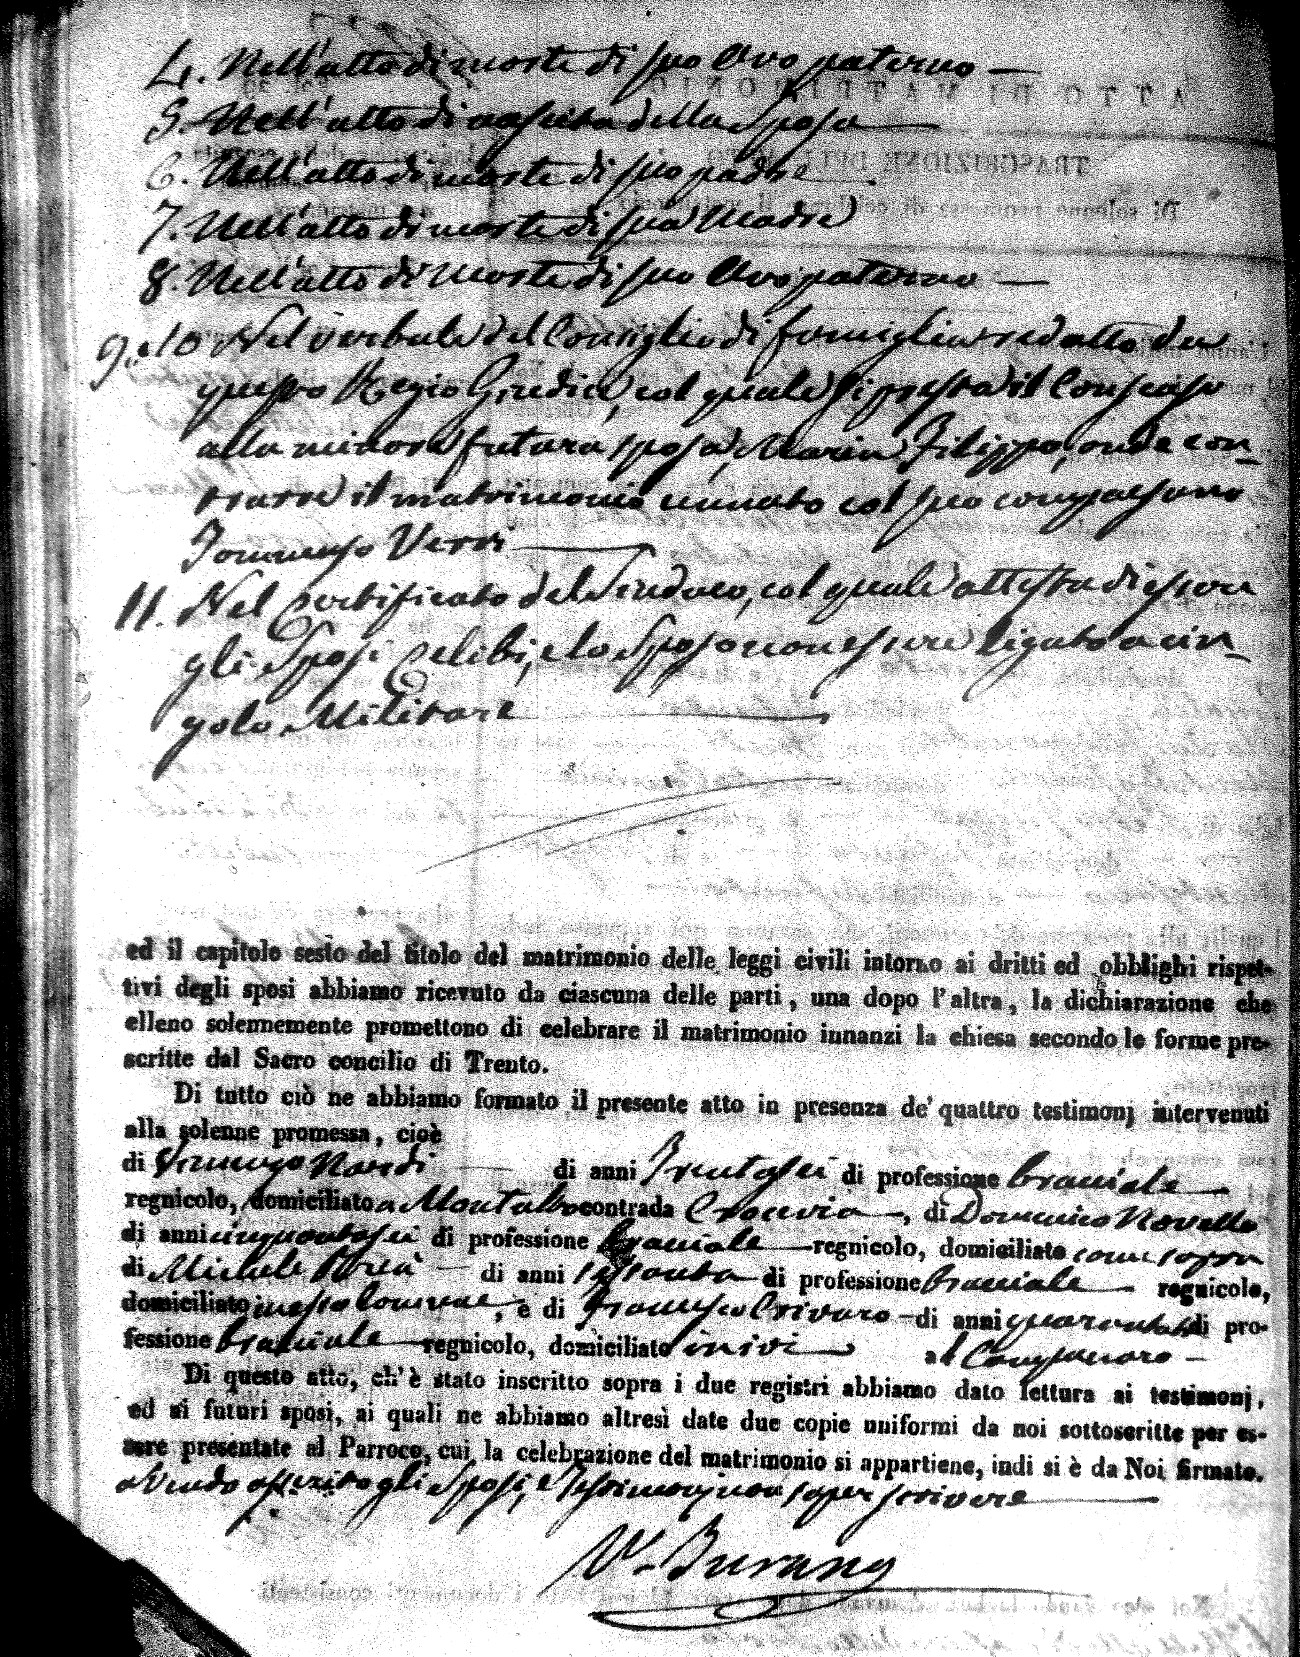 4. Nell'atto di morte di suo Avo paterno —
5. Nell'atto di nascita della Sposa
6. Nell'atto di morte di suo padre
7. Nell'atto di morte di sua Madre
8. Nell'atto di Morte di suo Avo paterno —
9. e 10 Nel verbale del Consiglio di famiglia redatto da
questo Regio Giudice, col quale si presta il Consenso
alla minore futura sposa, Maria Filippo, onde con-
trarre il matrimonio col suo compaesano
Tommaso Verri
11. Nel Certificato del Sindaco, col quale attesta di essere
gli Sposi Celibi, e lo Sposo non essere ligato a cin-
golo Militare
ed il capitolo sesto del titolo del matrimonio delle leggi civili intorno ai dritti ed obblighi rispet-
tivi degli sposi abbiamo ricevuto da ciascuna delle parti, una dopo l'altra, la dichiarazione che
elleno solennemente promettono di celebrare il matrimonio innanzi la chiesa secondo le forme pre-
scritte dal Sacro concilio di Trento.
Di tutto ciò ne abbiamo formato il presente atto in presenza de' quattro testimonj intervenuti
alla solenne promessa, cioè
di Nardi — di anni Trentasei di professione bracciale
regnicolo, domiciliato a Montalto contrada Crocevia, di Domenico Novello
di anni cinquantasei di professione bracciale regnicolo, domiciliato come sopra
di Michele — di anni sessanta di professione bracciale regnicolo,
domiciliato in esso Comune, e di Francesco Crivaro — di anni quaranta di pro-
fessione bracciale regnicolo, domiciliato in ivi al Campanaro —
Di questo atto, ch'è stato inscritto sopra i due registri abbiamo dato lettura ai testimonj,
ed ai futuri sposi, ai quali ne abbiamo altresì date due copie uniformi da noi sottoscritte per es-
sere presentate al Parroco, cui la celebrazione del matrimonio si appartiene, indi si è da Noi firmato.
avendo asserito gli Sposi, e Testimonj non saper scrivere